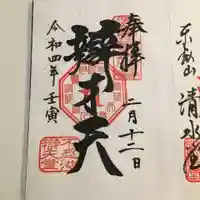 奉拝
二月十二日
辯才天
令和四年壬寅
東叡山
清水堂